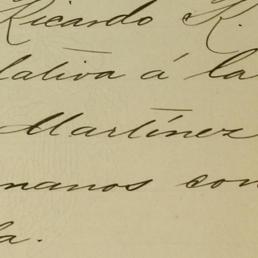 Ricardo K.
lativa á la
Martínez
manos con
la.